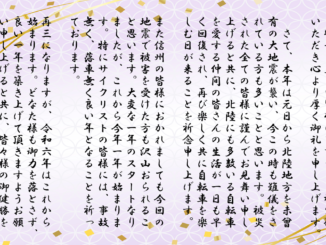 いただき心より厚く御礼を申し上げます。
さて、本年は元日から北陸地方を未曾
有の大地震が襲い、今この時も難儀をさ
れている方も多いことと思います。被災
された全ての皆様に謹んでお見舞い申し
上げると共に、北陸にも多数いる自転車
を愛する仲間の皆さんの生活が一日も早
く回復され、再び楽しく共に自転車を楽
しむ日が来ることを祈念申し上げます。
また信州の皆様におかれましても今回の
地震で被害を受けた方も沢山おられるこ
と思います。大変な一年のスタートなり
ましたが、これから今年一年が始まりま
す。特にサイクリストの皆様には、事故
無く、落車無く、良い年となることを祈っ
ております。
再三になりますが、令和六年はこれから
始まります。どなた様も御力を落とさず、
良い一年を築き上げて頂きますようお願
い申し上げると共に、皆々様の御健勝を